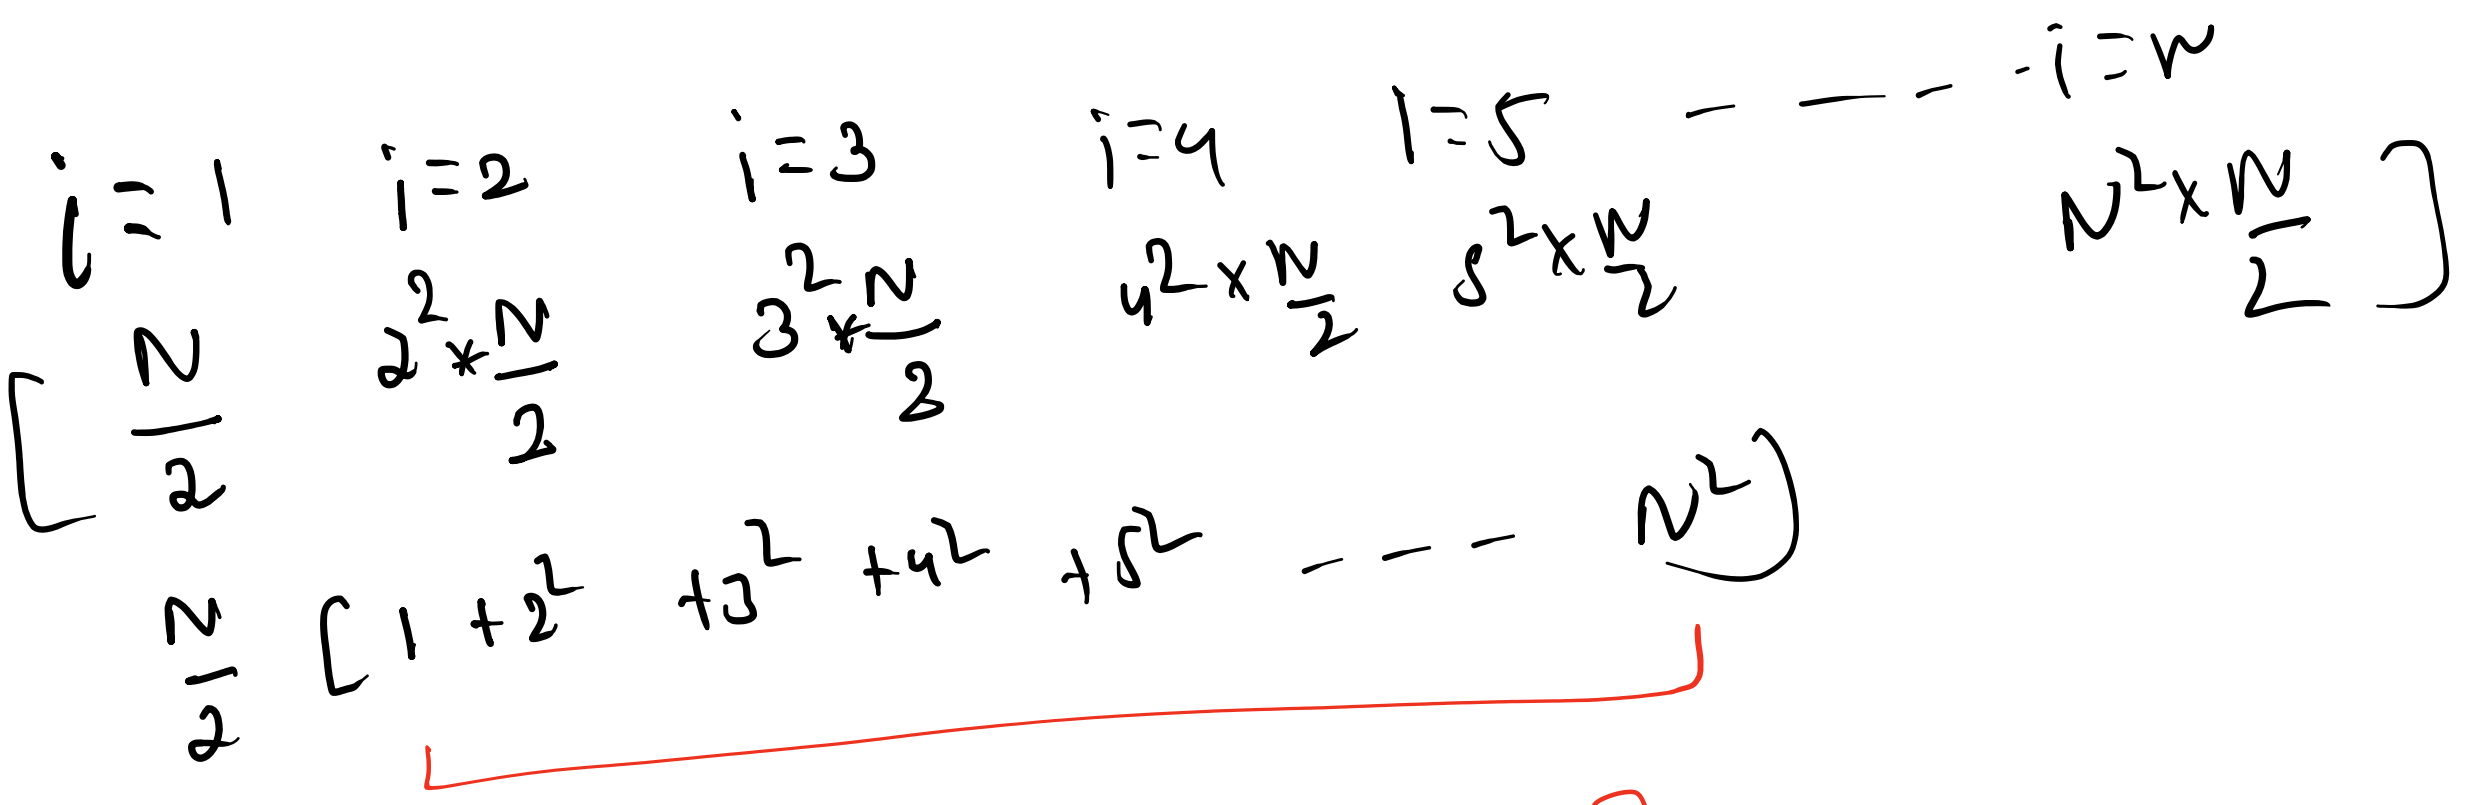 i = 1 i = 2 i = 3 i = 4 i = 5 - - - - i = n
[ N/2 2² * N/2 3² * N/2 4² × N/2 5² × N/2 N² × N/2 ]
N/2 [ 1 + 2² + 3² + 4² + 5² - - - N² )